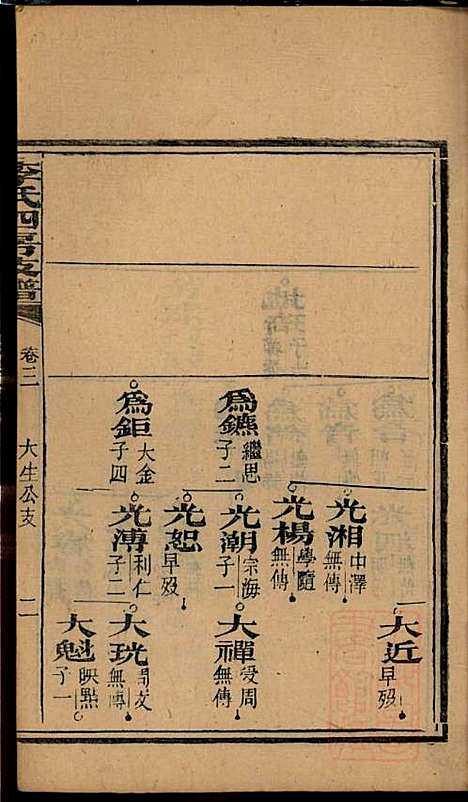 李氏四房支譜
卷三
大生公支
二
大近
早歿
光湘
中澤
無傳
光楊
學隨
無傳
為鑣
繼思
子二
光潮
宗海
子一
大禪
受周
無傳
光恕
早歿
為鉅
大金
子四
光溥
利仁
子二
大珖
無傳
大魁
映點
子一